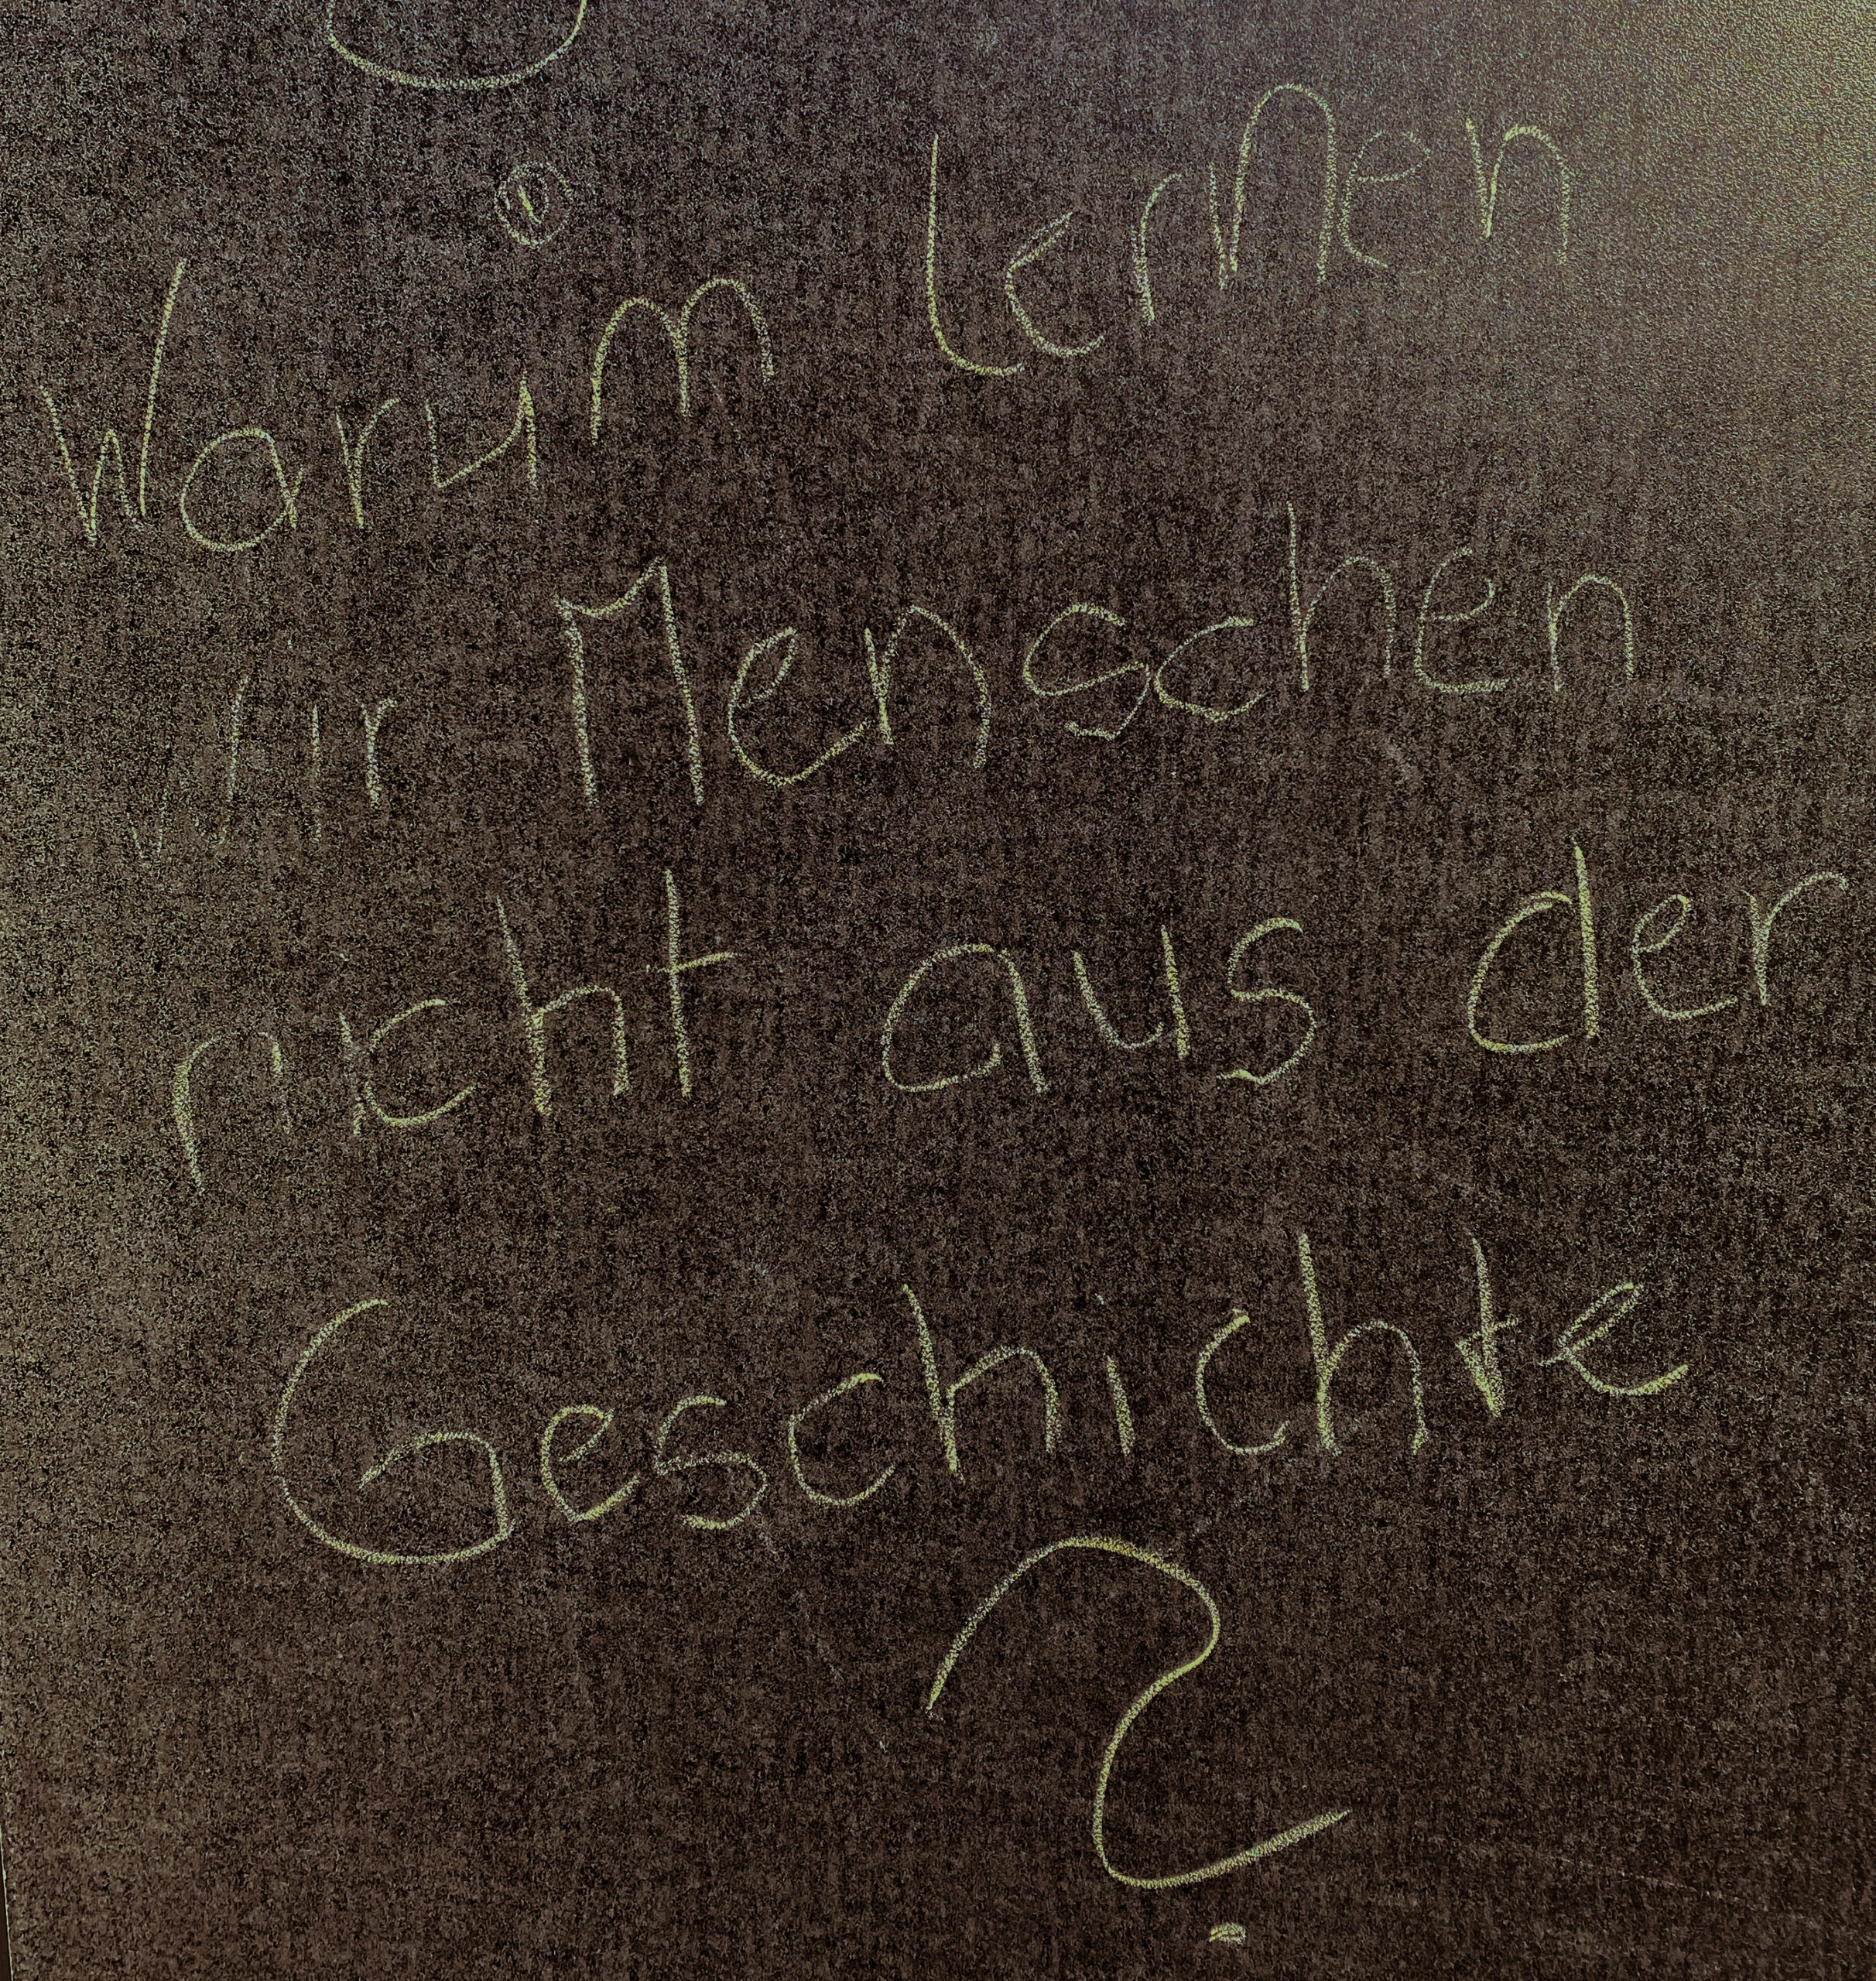 Warum Lernen
wir Menschen
nicht aus der
Geschichte
?